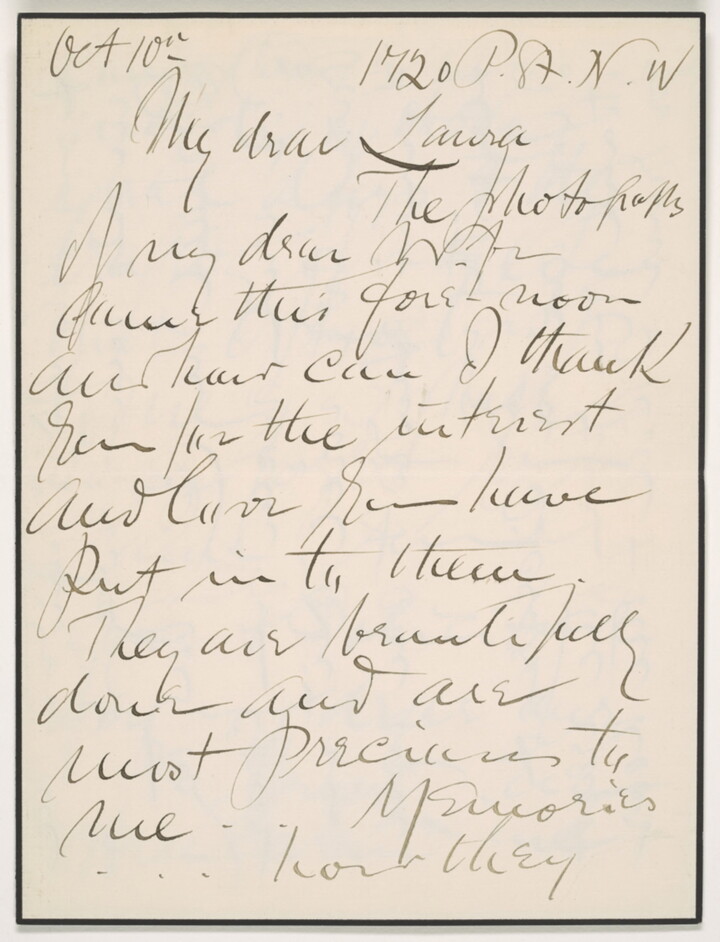 Oct 10th 1720 P. St. N. W
My dear Laura
The photographs
of my dear
came this fore-noon
and how can I thank
you for the interest
and love you have
put in to them.
They are beautifully
done and are
most precious to
me . . . Memories
. . . how they